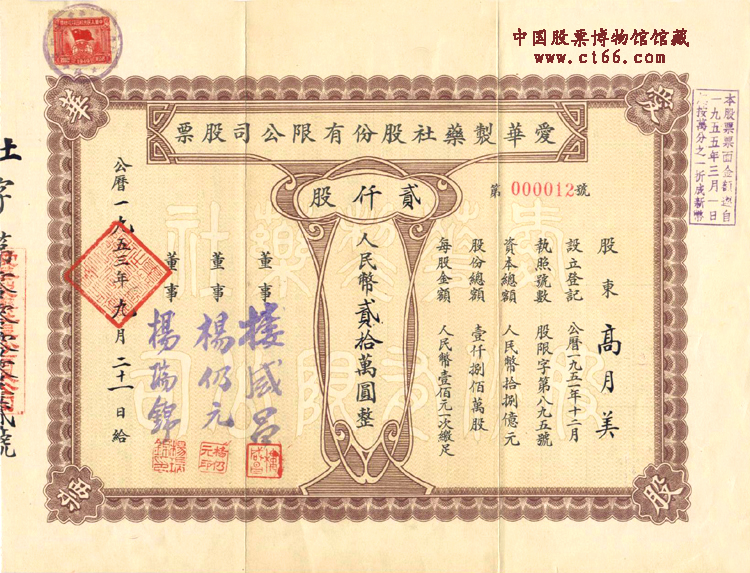 中国股票博物馆馆藏
www.ct66.com
愛
華
愛華製藥社股份有限公司股票
第 000012 號
貳仟股
本股票票面金額遵自
一九五五年三月一日
按萬分之一折成新幣
股東 高月美
設立登記 公曆一九五一年十二月
執照號數 股限字第八九五號
資本總額 人民幣拾捌億元
股份總額 壹仟捌佰萬股
每股金額 人民幣壹佰元一次繳足
人民幣貳拾萬圓整
董事 樓盛
董事 楊仍元
董事 楊瑞錦
公曆一九五三年九月二十一日給
字第
號
股
票